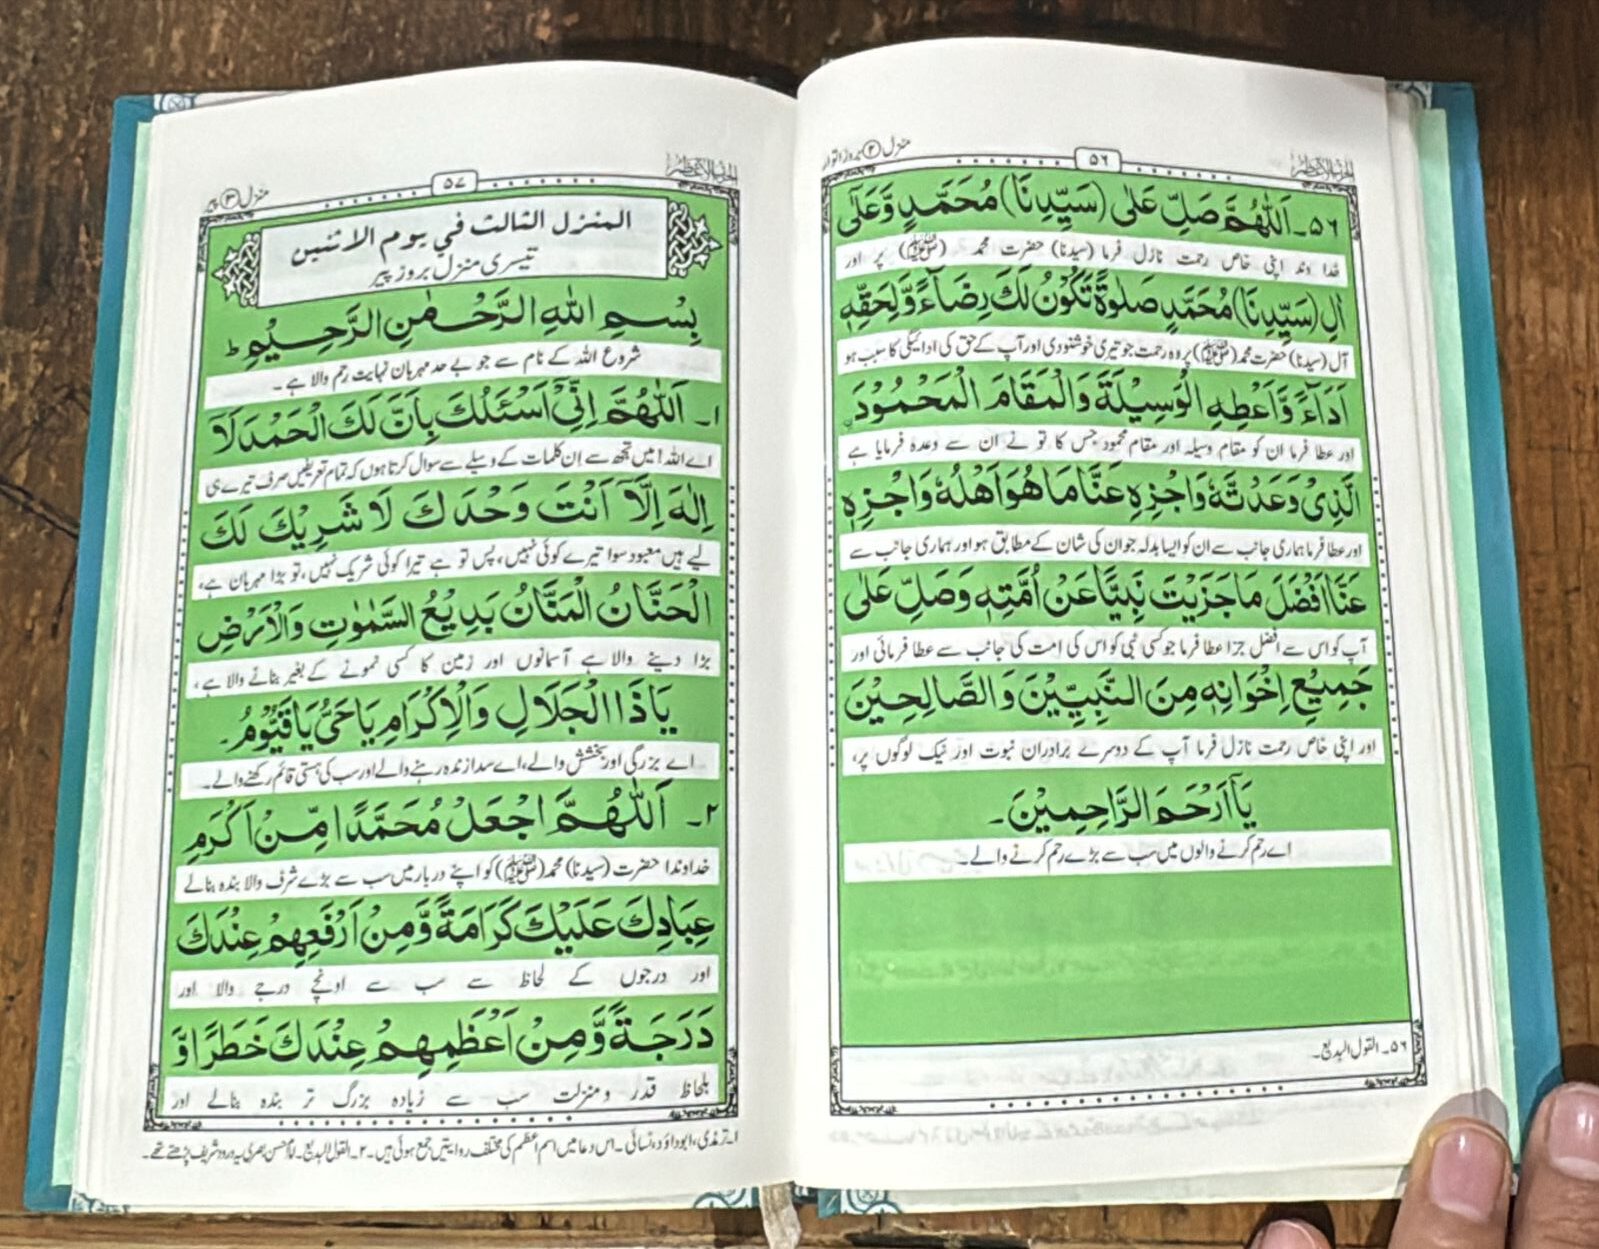 الحزب الاعظم
۵۶
منزل ۲ بروز اتوار
۵۶۔ اَللّٰهُمَّ صَلِّ عَلٰى (سَيِّدِنَا) مُحَمَّدٍ وَّعَلٰٓى
خدا وند اپنی خاص رحمت نازل فرما (سیدنا) حضرت محمد (ﷺ) پر اور
اٰلِ (سَيِّدِنَا) مُحَمَّدٍ صَلٰوةً تَكُوْنُ لَكَ رِضَآءً وَّلِحَقِّهٖ
آل (سیدنا) حضرت محمد (ﷺ) پر وہ رحمت جو تیری خوشنودی اور آپ کے حق کی ادائیگی کا سبب ہو
اَدَآءً وَّاَعْطِهِ الْوَسِيْلَةَ وَالْمَقَامَ الْمَحْمُوْدَ
اور عطا فرما ان کو مقام وسیلہ اور مقام محمود جس کا تو نے ان سے وعدہ فرمایا ہے
الَّذِىْ وَعَدْتَّهٗ وَاجْزِهٖ عَنَّا مَا هُوَ اَهْلُهٗ وَاجْزِهٖ
اور عطا فرما ہماری جانب سے ان کو ایسا بدلہ جو ان کی شان کے مطابق ہو اور ہماری جانب سے
عَنَّا اَفْضَلَ مَا جَزَيْتَ نَبِيًّا عَنْ اُمَّتِهٖ وَصَلِّ عَلٰى
آپ کو اس سے افضل جزا عطا فرما جو کسی نبی کو اس کی امت کی جانب سے عطا فرمائی اور
جَمِيْعِ اِخْوَانِهٖ مِنَ النَّبِيِّيْنَ وَالصَّالِحِيْنَ
اور اپنی خاص رحمت نازل فرما آپ کے دوسرے برادران نبوت اور نیک لوگوں پر،
يَآ اَرْحَمَ الرَّاحِمِيْنَ۔
اے رحم کرنے والوں میں سب سے بڑے رحم کرنے والے۔
۵۶۔ القول البدیع۔
الحزب الاعظم
۵۷
منزل ۳ پیر
المنزل الثالث في يوم الاثنين
تیسری منزل بروز پیر
بِسْمِ اللّٰهِ الرَّحْمٰنِ الرَّحِيْمِ ط
شروع اللہ کے نام سے جو بے حد مہربان نہایت رحم والا ہے۔
۱۔ اَللّٰهُمَّ اِنِّىْٓ اَسْئَلُكَ بِاَنَّ لَكَ الْحَمْدَ لَآ
اے اللہ! میں تجھ سے ان کلمات کے وسیلے سے سوال کرتا ہوں کہ تمام تعریفیں صرف تیرے ہی
اِلٰهَ اِلَّآ اَنْتَ وَحْدَكَ لَا شَرِيْكَ لَكَ
لیے ہیں معبود سوا تیرے کوئی نہیں، بس تو ہے تیرا کوئی شریک نہیں، تو بڑا مہربان ہے،
الْحَنَّانُ الْمَنَّانُ بَدِيْعُ السَّمٰوٰتِ وَالْاَرْضِ
بڑا دینے والا ہے آسمانوں اور زمین کا کسی نمونے کے بغیر بنانے والا ہے،
يَا ذَا الْجَلَالِ وَالْاِكْرَامِ يَا حَىُّ يَا قَيُّوْمُ۔
اے بزرگی اور بخشش والے، اے سدا زندہ رہنے والے اور سب کی ہستی قائم رکھنے والے۔
۲۔ اَللّٰهُمَّ اجْعَلْ مُحَمَّدًا مِّنْ اَكْرَمِ
خداوندا حضرت (سیدنا) محمد (ﷺ) کو اپنے دربار میں سب سے بڑے شرف والا بندہ بنالے
عِبَادِكَ عَلَيْكَ كَرَامَةً وَّمِنْ اَرْفَعِهِمْ عِنْدَكَ
اور درجوں کے لحاظ سے سب سے اونچے درجے والا اور
دَرَجَةً وَّمِنْ اَعْظَمِهِمْ عِنْدَكَ خَطَرًا وَّ
بلحاظ قدر و منزلت سب سے زیادہ بزرگ تر بندہ بنالے اور
۱۔ ترمذی، ابوداؤد، نسائی۔ اس دعا میں اسم اعظم کی مختلف روایتیں جمع ہوئی ہیں۔ ۲۔ القول البدیع۔ امام حسن بصری یہ درود شریف پڑھتے تھے۔